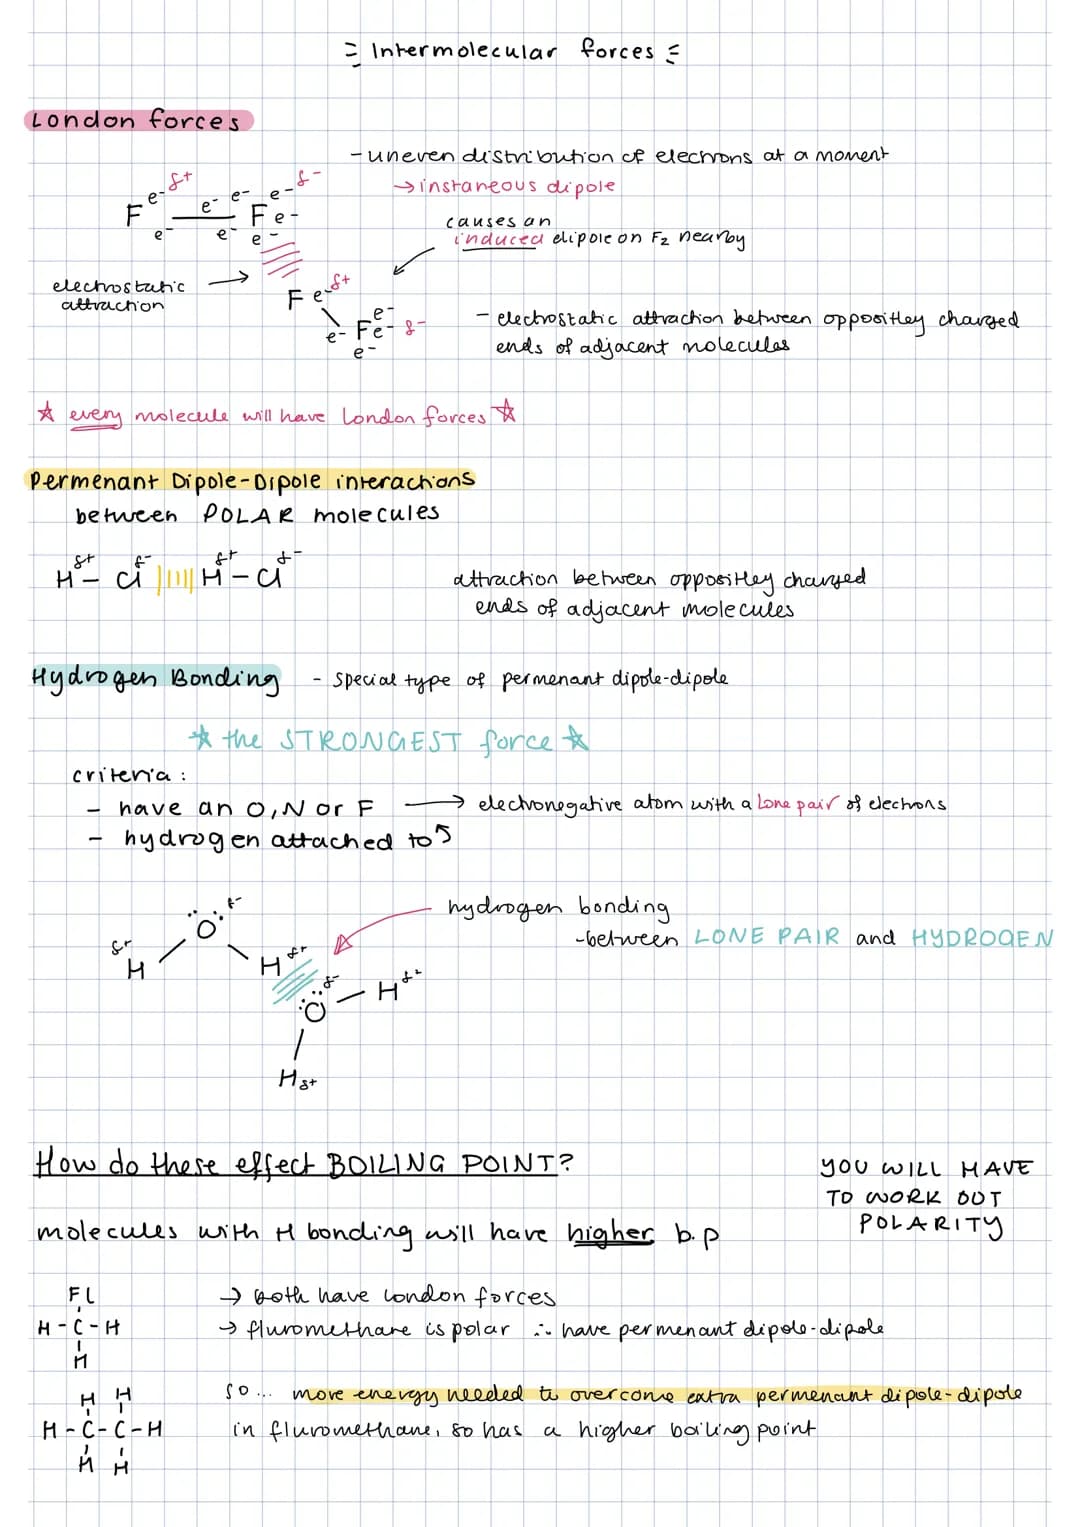 = Intermolecular forces =
London forces
- uneven distribution of electrons at a moment
→ instaneous dipole
F e- δ+ e- e- e- δ-
F e-
e- e- e-
causes an
induced dipole on F2 nearby
electrostatic
attraction
F e- δ+
e- F e- e- δ-
e-
- electrostatic attraction between oppositley charged
ends of adjacent molecules
☆ every molecule will have London forces ☆
Permenant Dipole-Dipole interactions
between POLAR molecules
Hδ+ - Clδ- ||||| Hδ+ - Clδ-
attraction between oppositley charged
ends of adjacent molecules
Hydrogen Bonding - special type of permenant dipole-dipole
☆ the STRONGEST force ☆
criteria :
- have an O, N or F → electronegative atom with a lone pair of electrons
- hydrogen attached to ↰
hydrogen bonding
- between LONE PAIR and HYDROGEN
O δ-
δ+ H
H δ+
O δ- - H δ+
H δ+
How do these effect BOILING POINT?
YOU WILL HAVE
TO WORK OUT
POLARITY
molecules with H bonding will have higher b.p
FL
H - C - H
H
→ both have london forces
→ fluromethane is polar ∴ have permenant dipole-dipole
H H
H - C - C - H
H H
so... more energy needed to overcome extra permenant dipole-dipole
in fluromethane, so has a higher boiling point